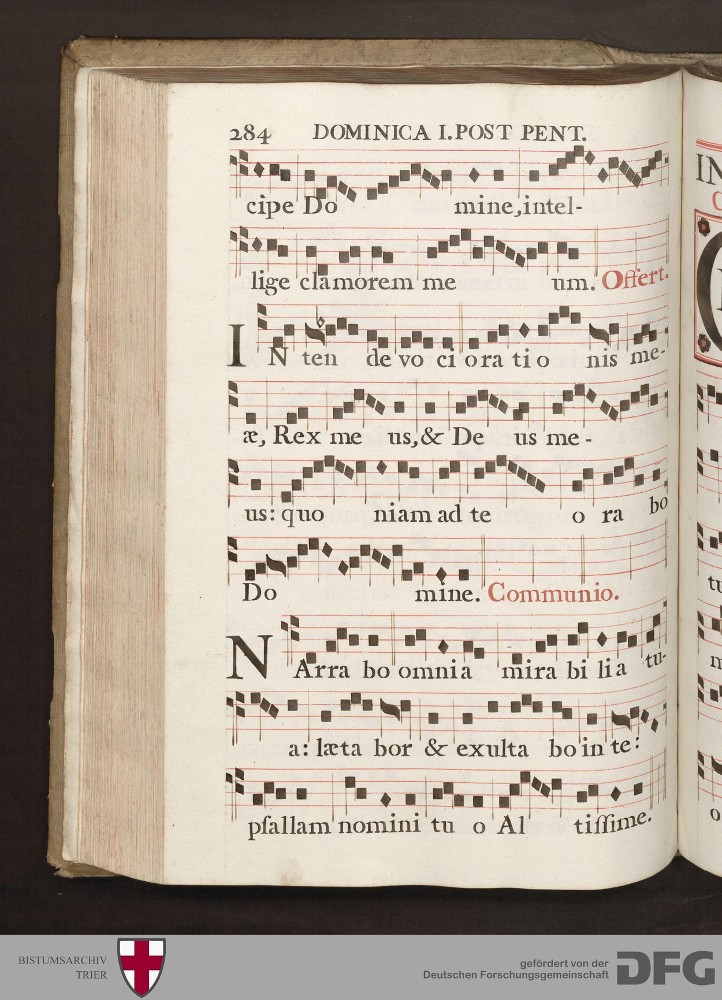 284 DOMINICA I. POST PENT.
cipe Do mine, intel-
lige clamorem me um. Offert.
IN ten de vo ci o ra ti o nis me-
æ, Rex me us, & De us me-
us: quo niam ad te o ra bo
Do mine. Communio.
NArra bo omnia mira bi li a tu-
a: læta bor & exulta bo in te:
pſallam nomini tu o Al tiſſime.
IN
tu
o
BISTUMSARCHIV
TRIER
gefördert von der
Deutschen Forschungsgemeinschaft
DFG